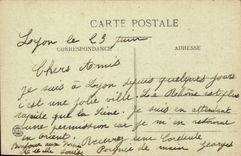 CARTE POSTALE
Lyon le 23 Juin
CORRESPONDANCE
ADRESSE
Chers Amis
Je suis à Lyon depuis quelques jours
c'est une jolie ville. Le Rhône est plus
rapide que la Je suis en attendant
une permission car je m en retourne
en orient. Recevez une cordiale
Bonjour aux Poignée de main Georges
et de